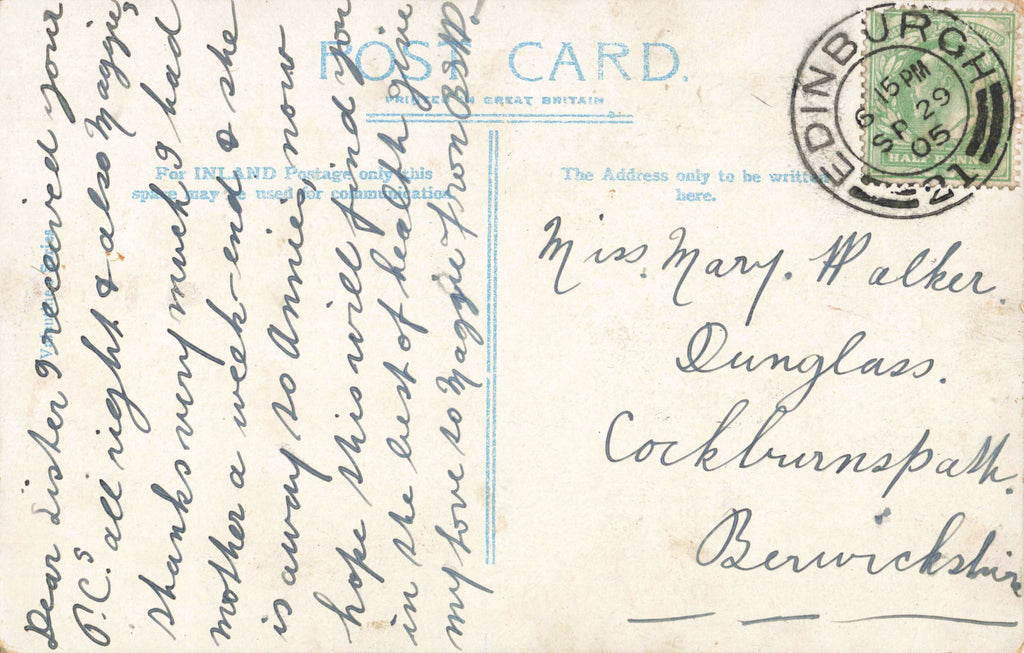 POST CARD.
PRINTED IN GREAT BRITAIN
For INLAND Postage only this
space may be used for communication.
The Address only to be written
here.
EDINBURGH
6 15 PM
SP 29
05
21
HALF PENNY
Dear Sister I received your
P.C.s all right & also Maggies
thanks very much I had
mother a week-end & she
is away to Annies, now
hope this will find you
in the best of health give
my love to Maggie from
Miss. Mary. Walker.
Dunglass.
Cockburnspath.
Berwickshire